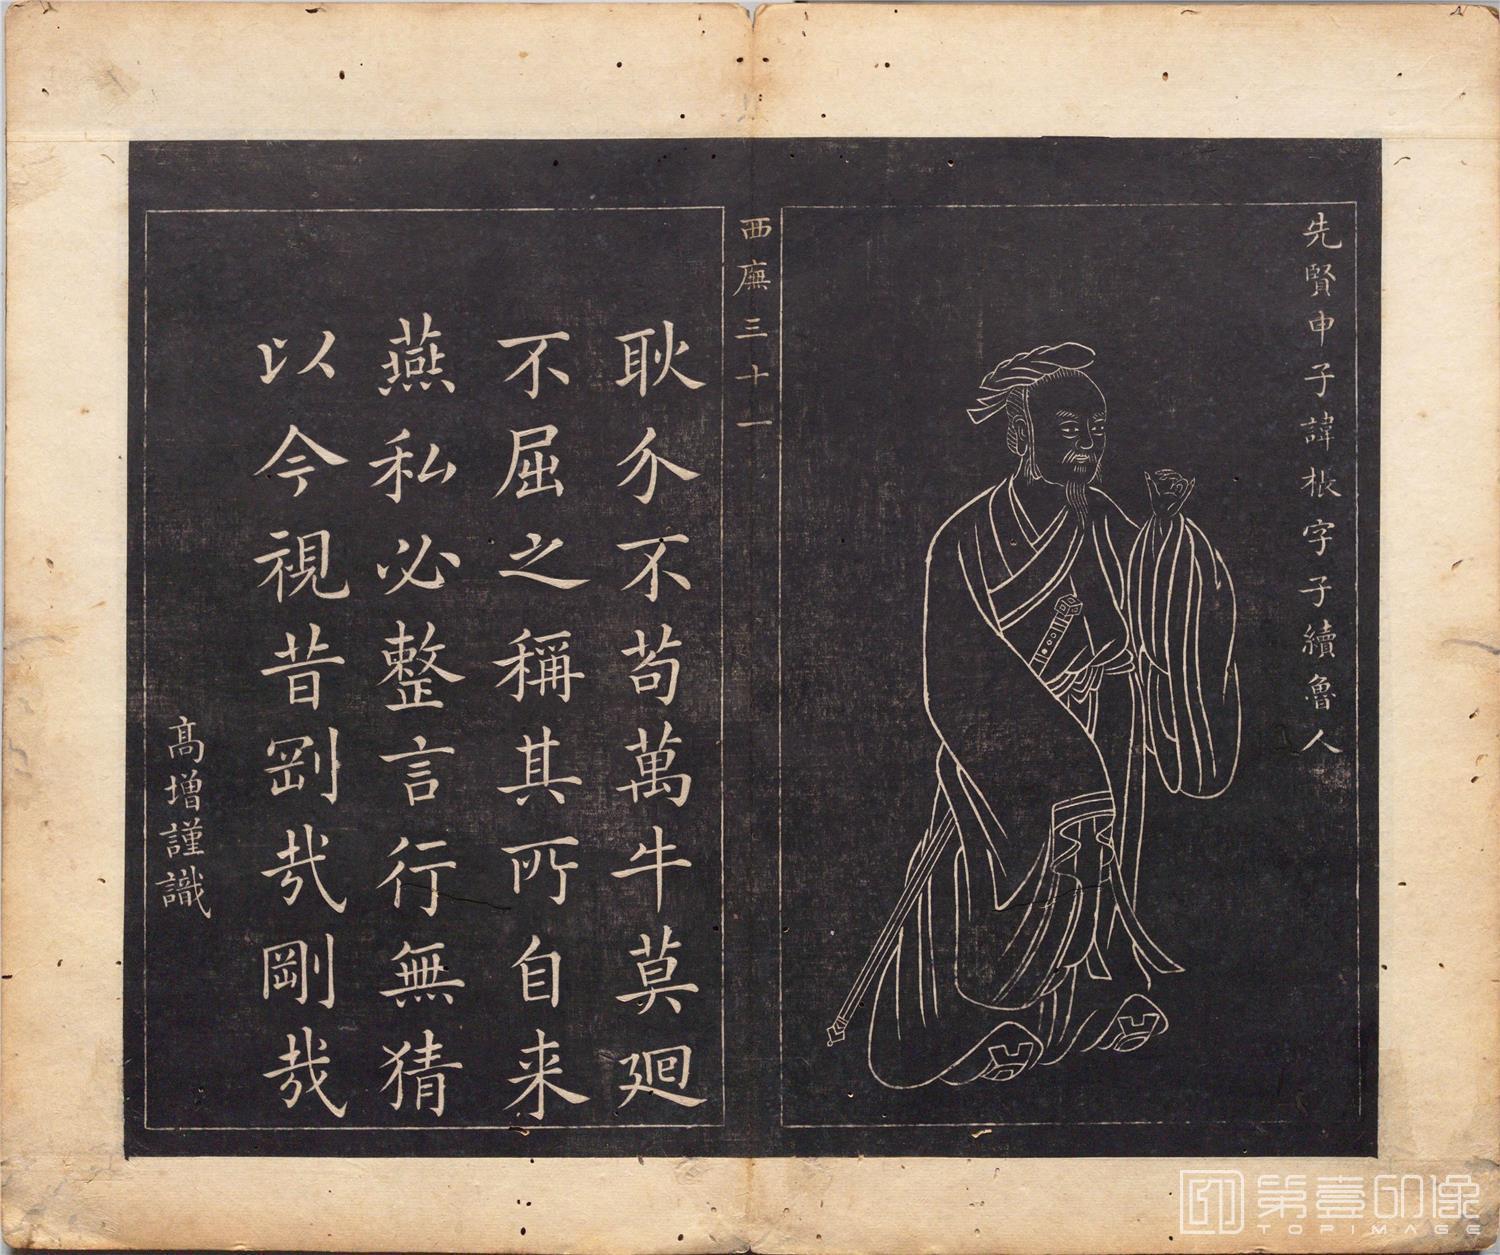 先賢申子諱棖字子續魯人
西廡三十一
耿介不苟萬牛莫廻
不屈之稱其所自来
燕私必整言行無猜
以今視昔剛哉剛哉
高增謹識
第壹印像
TOPIMAGE